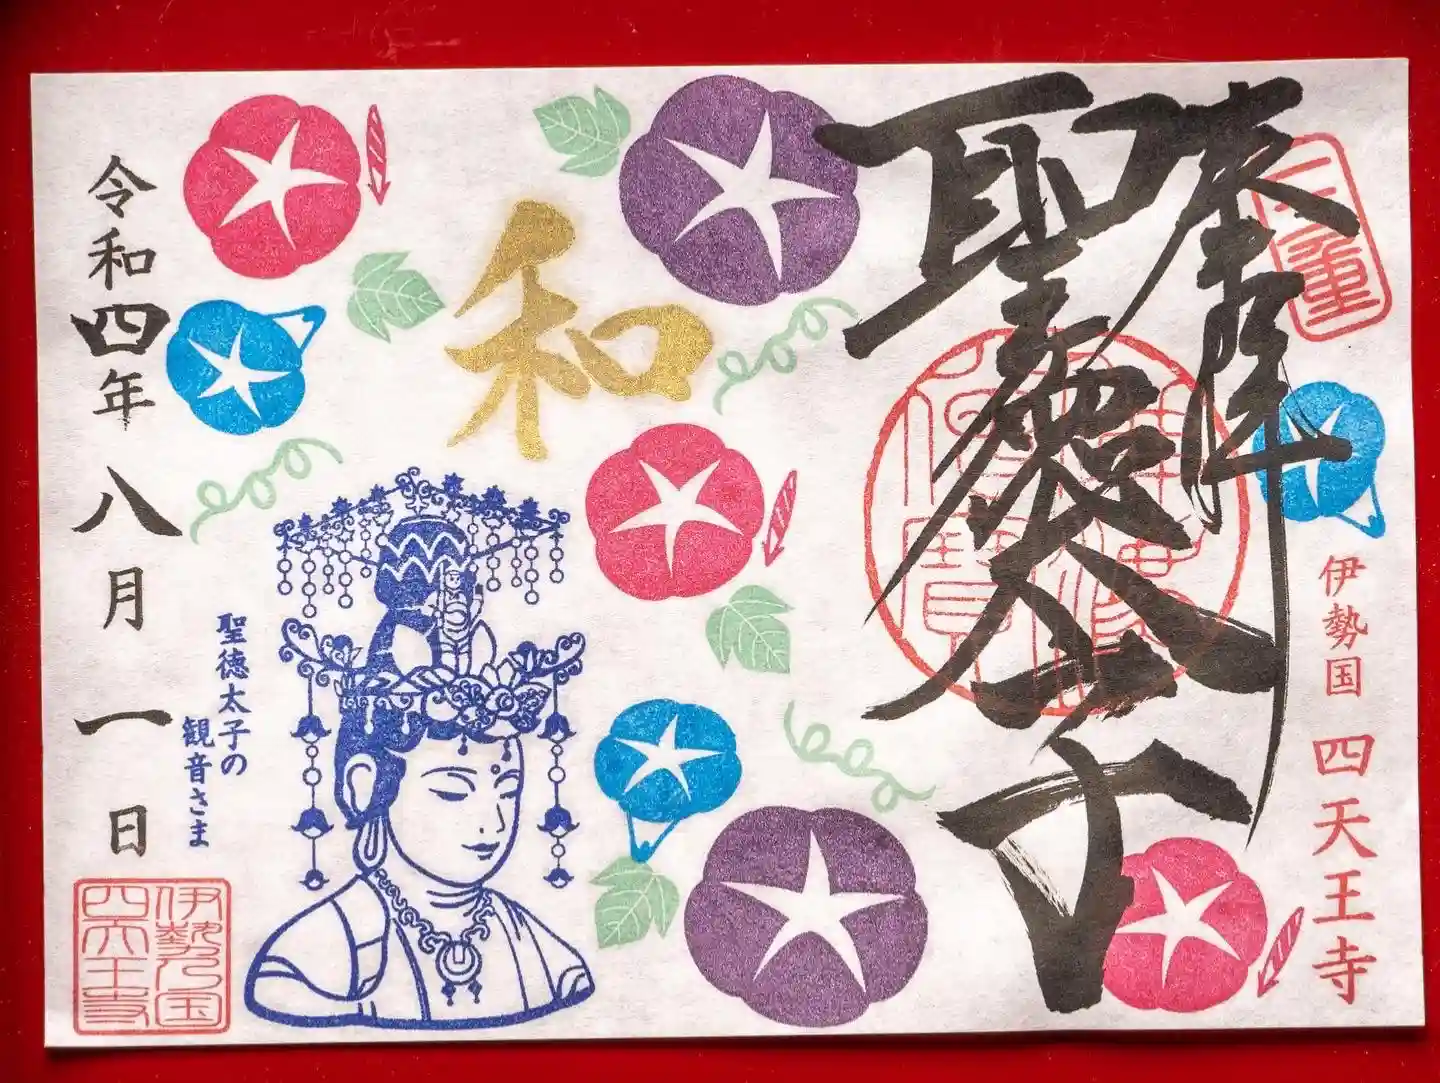 奉拝
聖徳太子
伊勢国 四天王寺
和
聖徳太子の
観音さま
令和四年八月一日
伊勢乃国
四天王寺